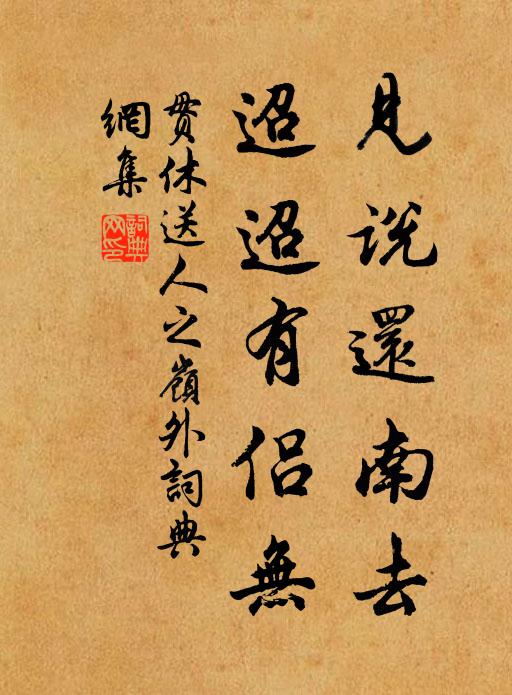 見説還南去
迢迢有侣無
貫休送人之嶺外詞典
網集
詞典
网印